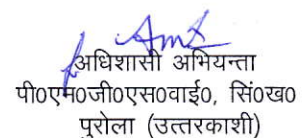 अधिशासी अभियन्ता
पी0एम0जी0एस0वाई0, सिं0ख0
पुरोला (उत्तरकाशी)